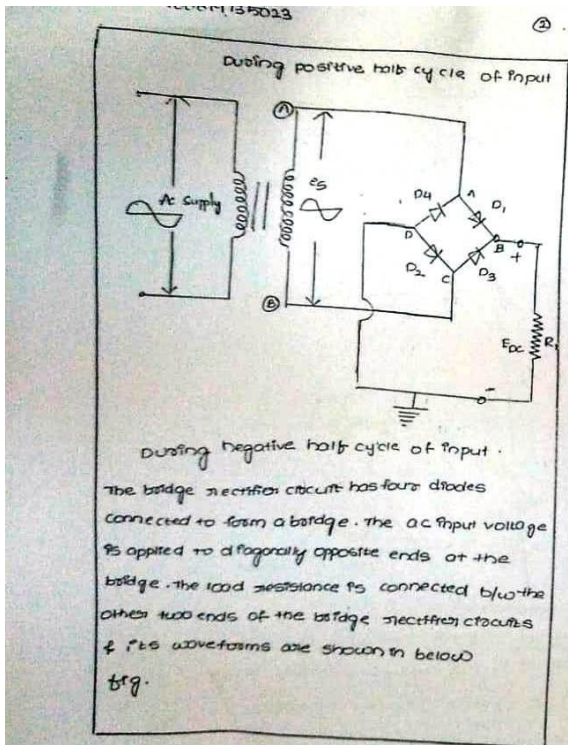 2
During positive half cycle of input
A
Ac supply
es
D4
A
D1
D
B
+
D2
C
D3
B
EDC
R
-
During negative half cycle of input.
The bridge rectifier circuit has four diodes
connected to form a bridge. The ac input voltage
is applied to diagonally opposite ends at the
bridge. The load resistance is connected b/w the
other two ends of the bridge rectifier circuits
& its waveforms are shown in below
fig.